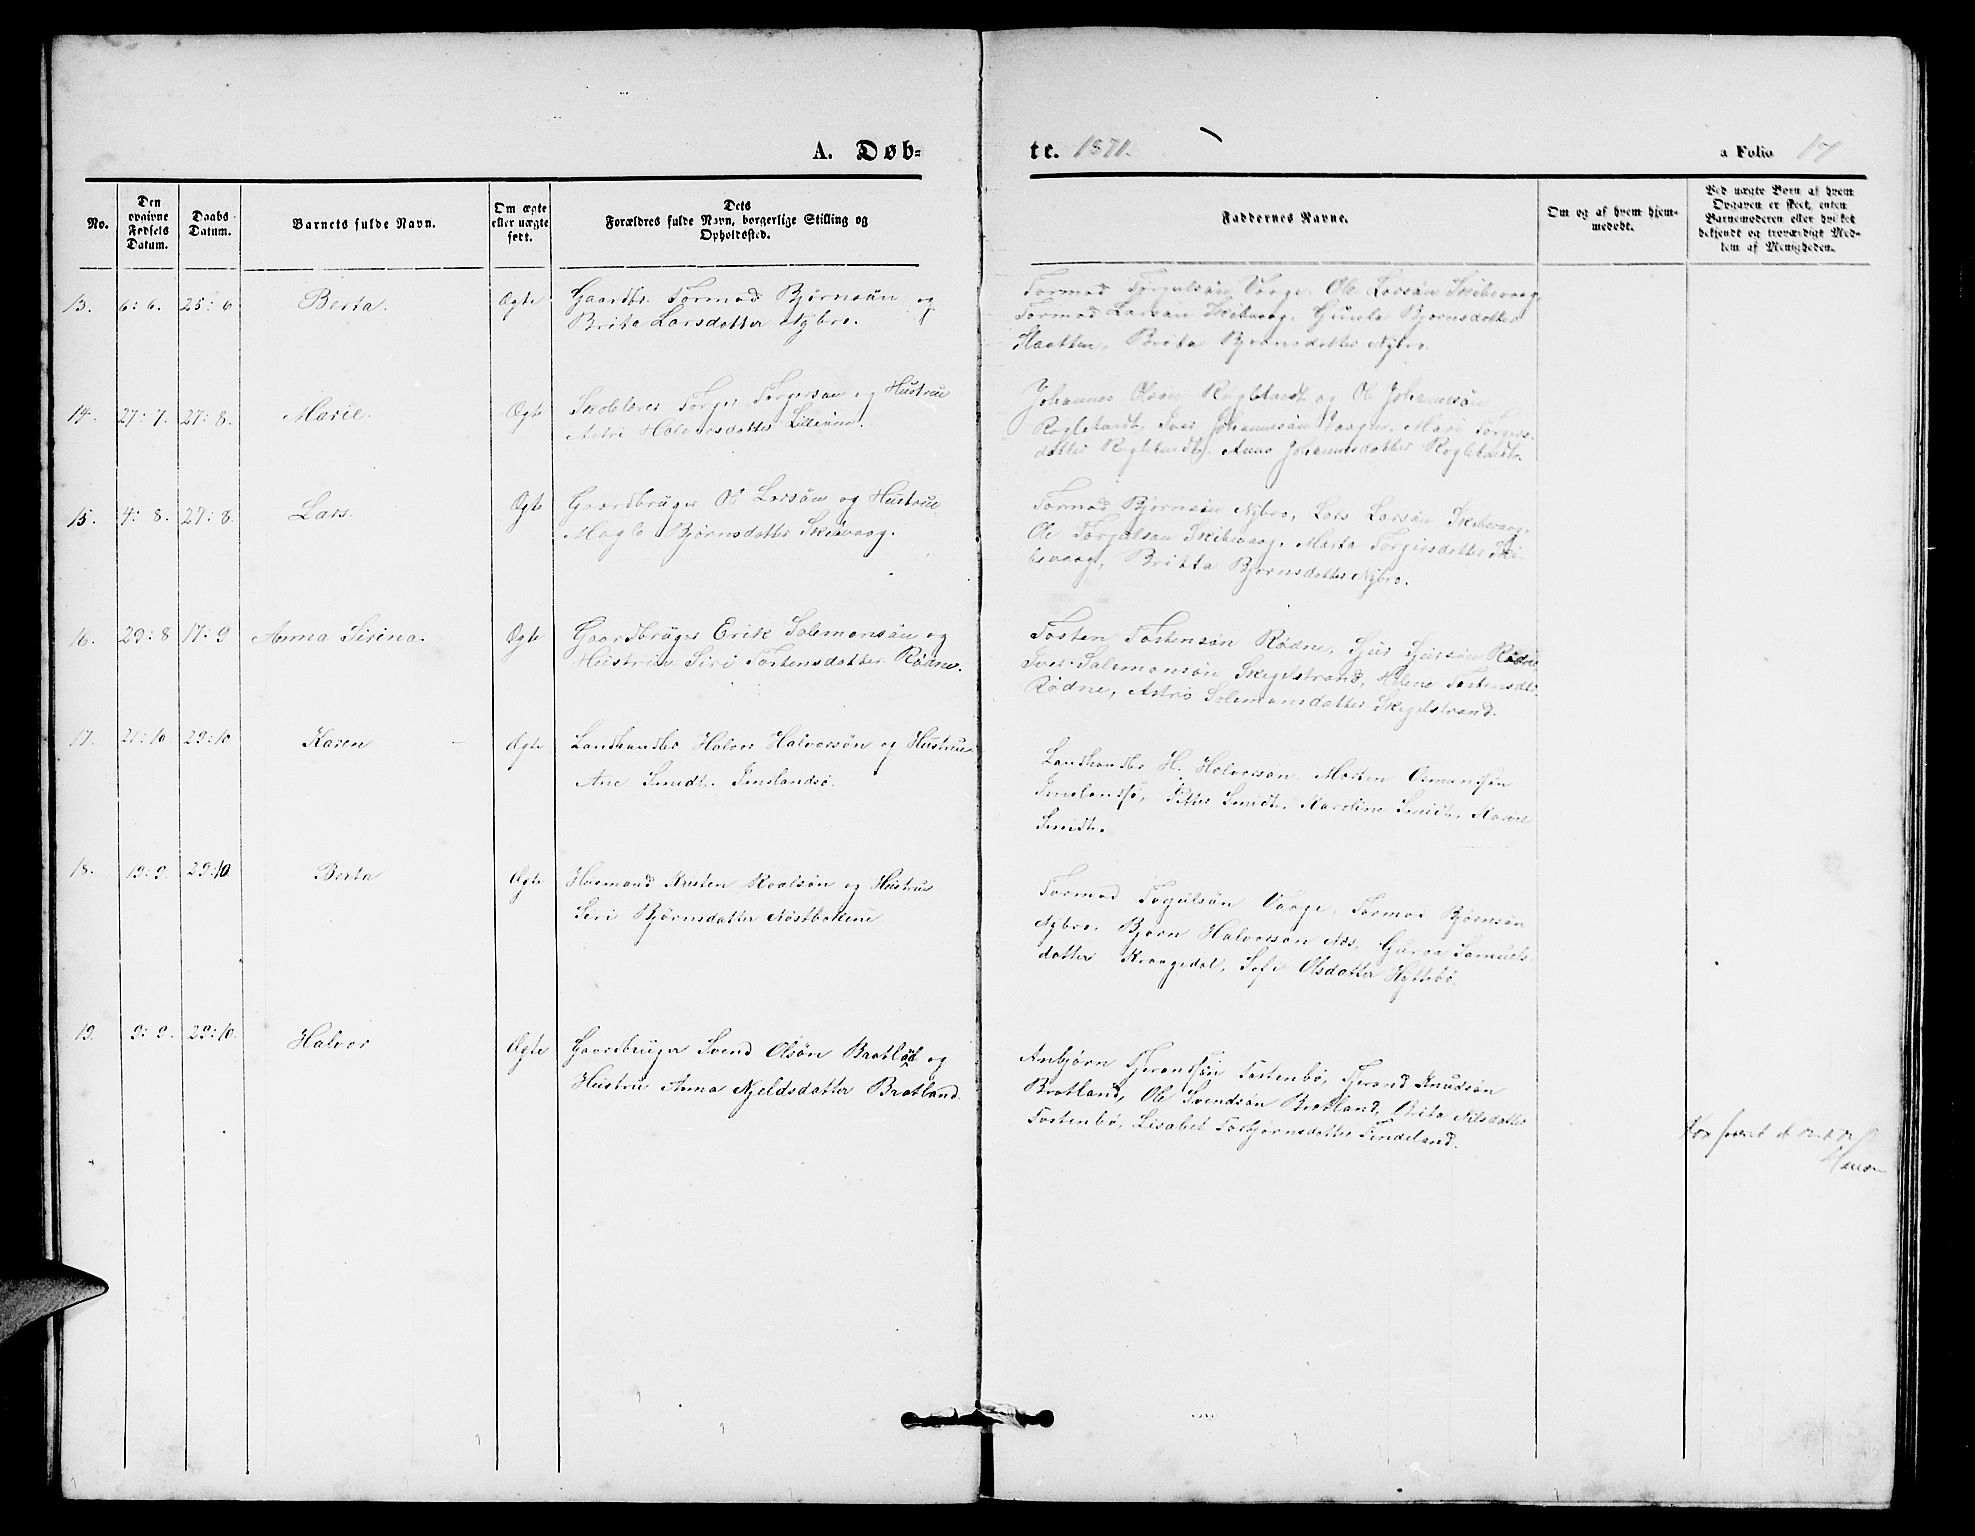 A. Døb-
te. 1871.
a Folio 17
No.
Den
opgivne
Fødsels
Datum.
Daabs
Datum.
Barnets fulde Navn.
Om ægte
eller uægte
født.
Dets
Forældres fulde Navn, borgerlige Stilling og
Opholdssted.
Faddernes Navne.
Om og af hvem hjem-
medøbt.
Ved uægte Børn af hvem
Opgaven er skeet, enten
Barnemoderen eller hvilket
bekjendt og troværdigt Med-
lem af Menigheden.
13. 6: 6. 25: 6 Berta. Ægte Gaardbr. Tormod Bjørnsøn og
Brita Larsdatter Nybro.
Tormod Torgulsøn Vaage. Ole Larsøn Skibevaag,
Tormod Larsøn Skibevaag. Gunla Bjørnsdatter
Haatten, Brita Bjørnsdatter Nybro.
14. 27: 7. 27: 8. Marie. Ægte Skolelærer Torger Torgersøn og Hustrue
Astri Halvorsdatter
Johannes Olsøn og Ole Johannesøn
Iver Johannesøn Vaage, Mari Torgers-
datter Anna Johannesdatter
15. 4: 8. 27: 8. Lars. Ægte Gaardbruger Ole Larsøn og Hustrue
Magla Bjørnsdatter Skibevaag.
Tormod Bjørnsøn Nybro, Lars Larsøn Skibevaag,
Ole Torgulsøn Skibevaag, Marta Torgersdatter Ski-
bevaag, Britta Bjørnsdatter Nybro.
16. 29: 8 17: 9 Anna Sirina. Ægte Gaardbruger Erik Salemonsøn og
Hustrue Siri Tostensdatter Rødne.
Tosten Tostensøn Rødne, Sjur Sjursøn Rødne
Iver Salemonsøn Skegelstrand, Helene Tostensdtr.
Rødne, Astri Solemonsdatter Skegelstrand.
17. 21: 10. 29: 10 Karen Ægte Landhandler Halvor Halvorsøn og Hustrue
Ane Smidt. Imslandsø.
Landhandler H. Halvorsøn. Morten Osmundsøn
Imslandsø, Peter Smidt. Karoline Smidt, Karine
Smidt.
18. 19: 9. 29: 10 Berta Ægte Husmand Kristen Roalsøn og Hustrue
Siri Bjørnsdatter Nøstbakkene.
Tormod Torgulsøn Vaage, Tormod Bjørnsøn
Nybro, Bjørn Halvorsøn Næs, Guroa Samuels-
datter Kraagedal, Sofi Olsdatter Hyttebø.
19. 9: 9. 29: 10. Halvor Ægte Gaardbruger Svend Olsøn Bratland og
Hustrue Anna Njeldsdatter Bratland.
Anbjørn Tjerandsøn Tostenbø, Tjerand Knudsøn
Bratland, Ole Svendsøn Bratland, Brita Nilsdatter
Tostenbø, Lisabet Torbjørnsdatter Tindeland.